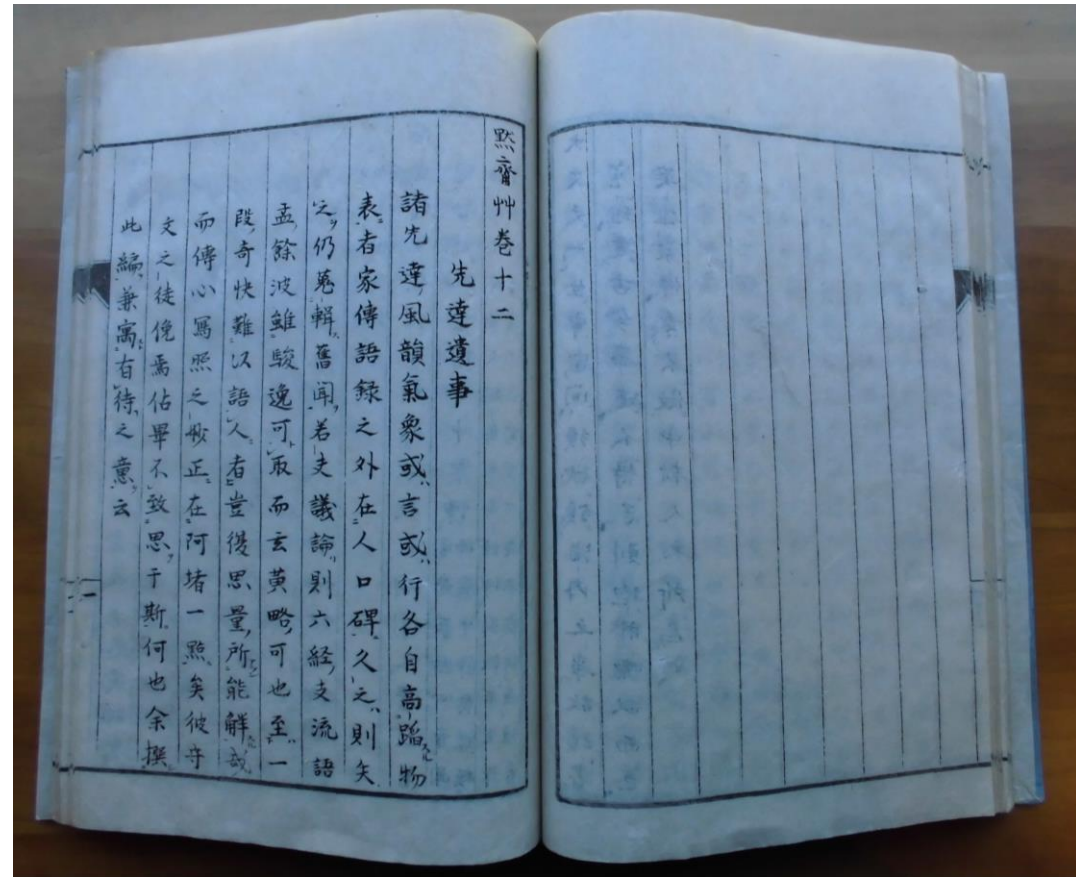 黙齋艸巻十二
先達遺事
諸先達風韻氣象或言或行各自高蹈物
表者家傳語録之外在人口碑久之則失
之仍蒐輯舊聞若夫議論則六経支流語
孟餘波雖駿逸可取而玄黄略可也至一
段奇快難以語人者豈復思量所能解哉
而傳心寫照之妙正在阿堵一點矣彼守
文之徒俛焉佔畢不致思于斯何也余撰
此編兼寓有待之意云